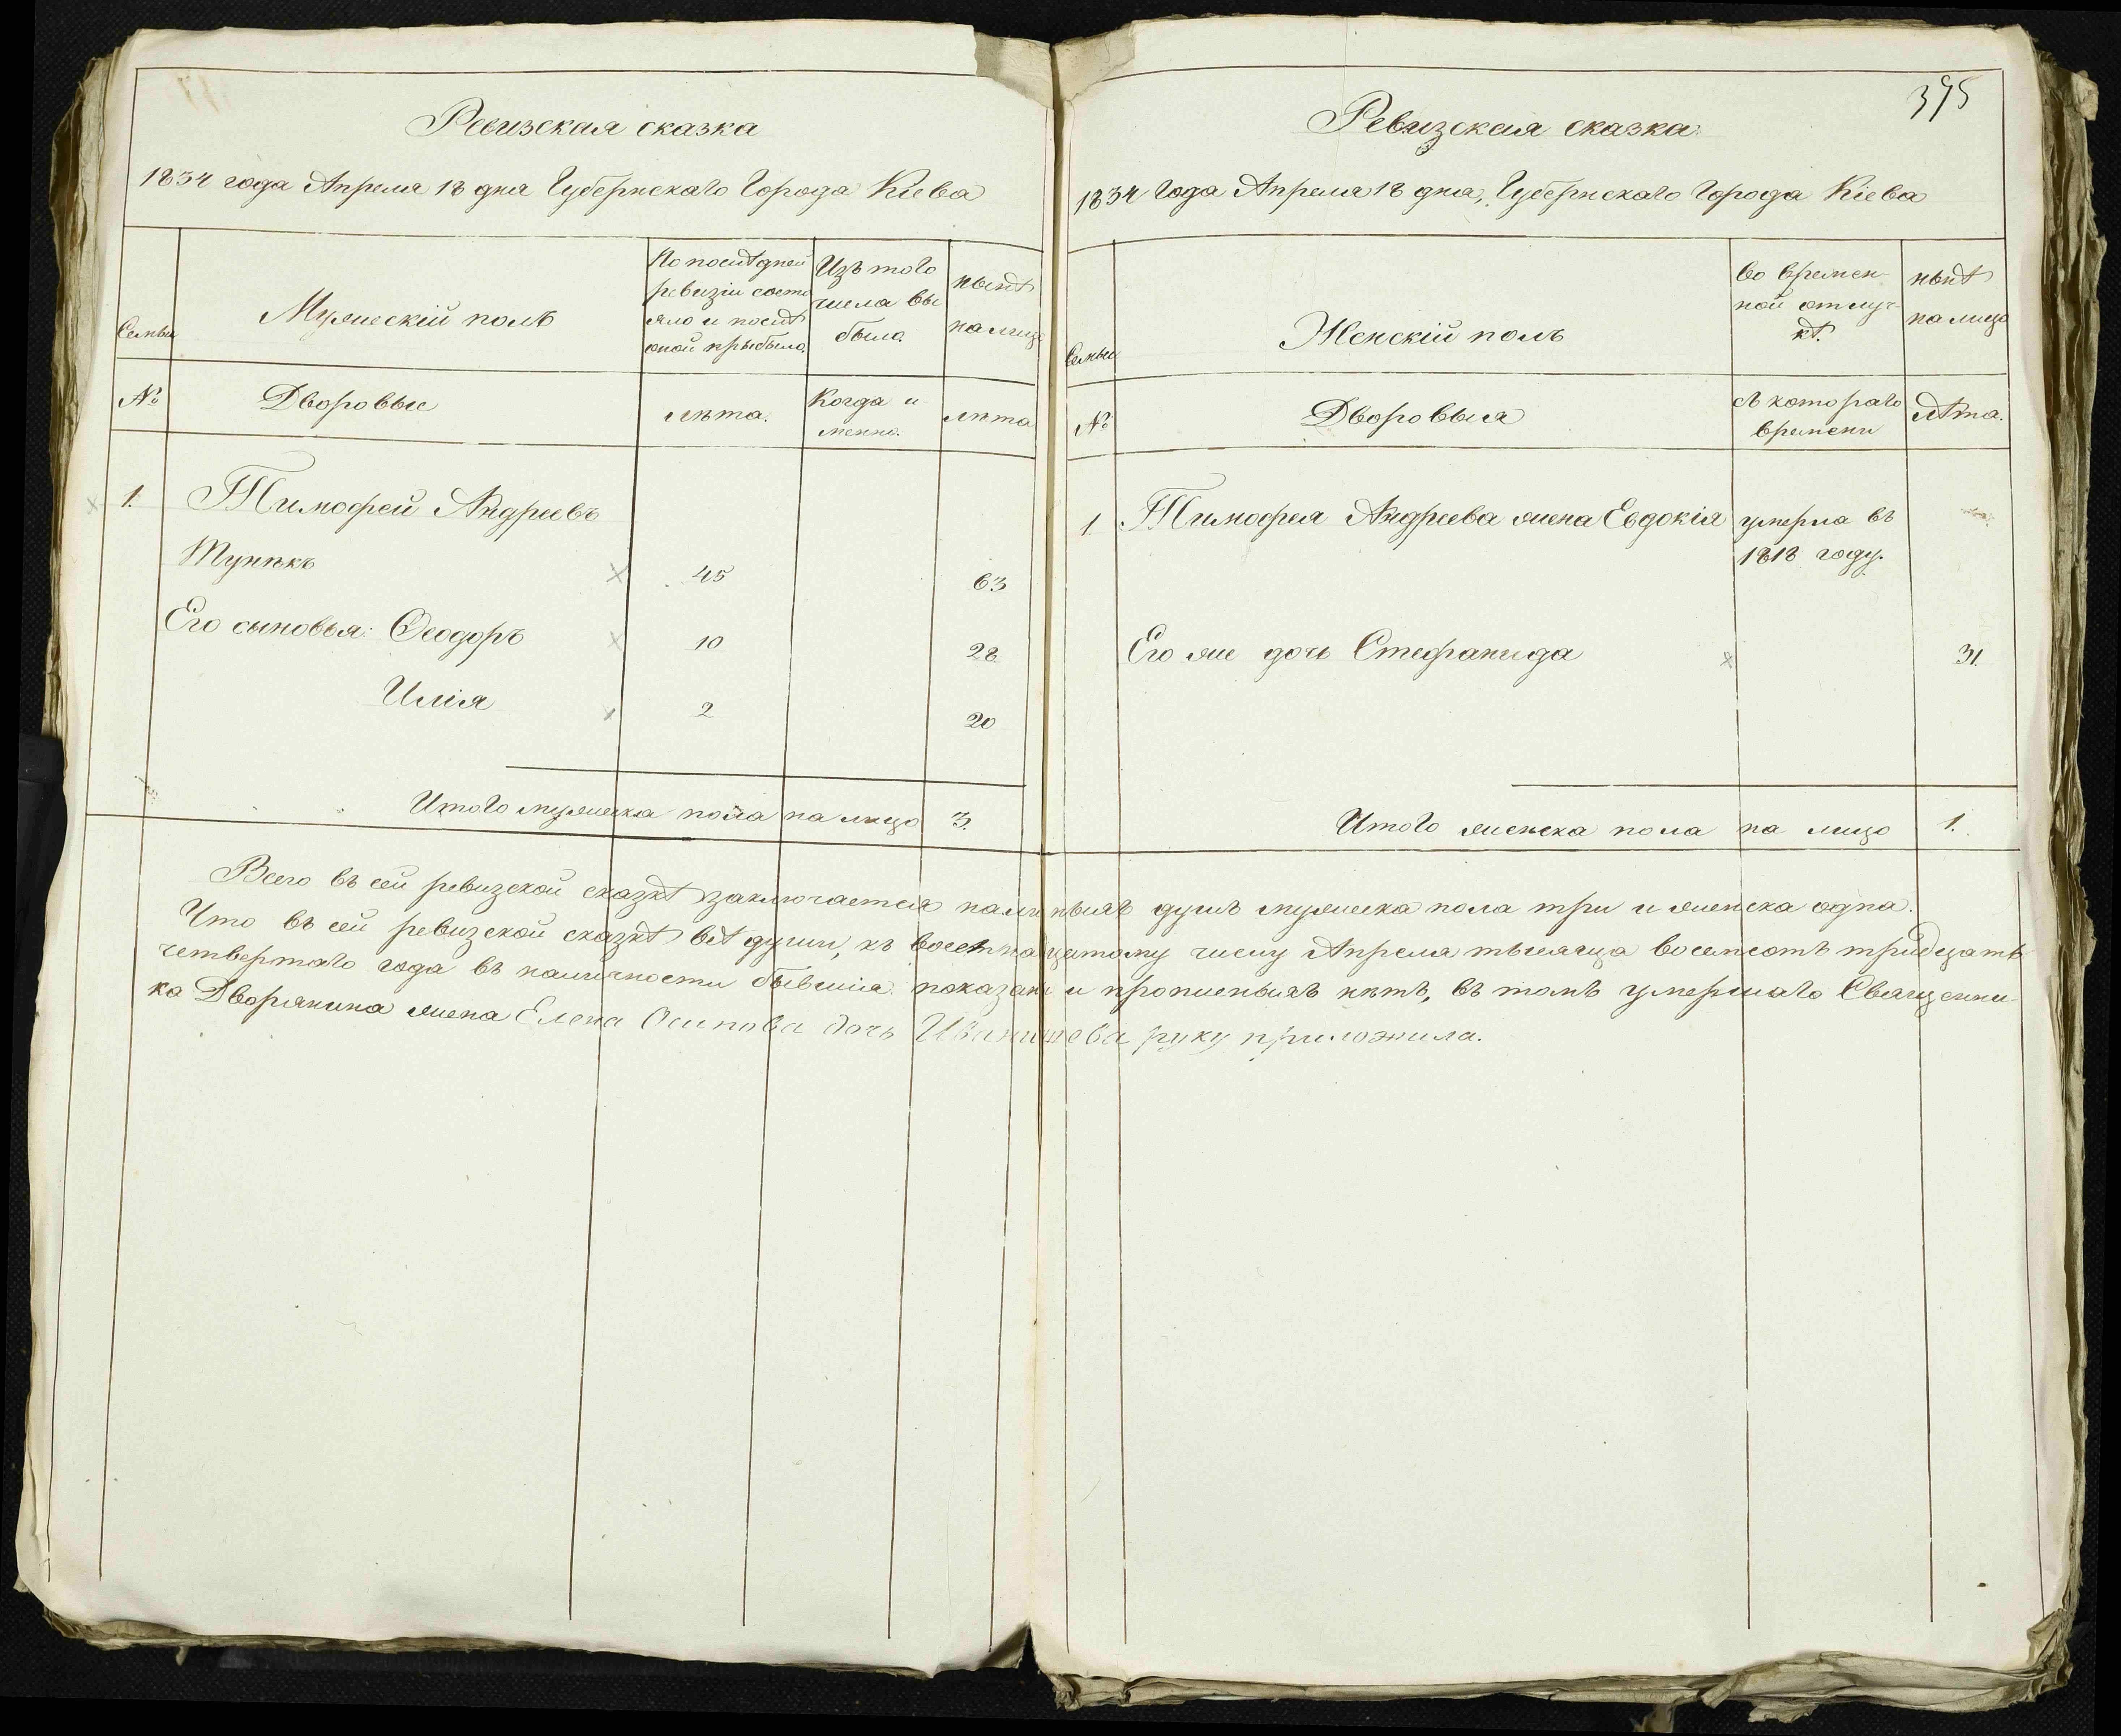 Ревизская сказка
1834 года Апреля 18 дня Губернскаго Города Кіева
Семьи
Мужескій полъ
По последней
ревизіи состо
яло и послѣ
оной прыбыло.
Изъ того
числа вы
было.
нынѣ
на лицо
№
Дворовые
лѣта.
Когда и-
менно.
лѣта
1. Тимофей Андреевъ
45 63
Его сыновья: Ѳеодоръ 10 28
Илія 2 20
Итого мужеска пола на лицо 3.
375
Ревизская сказка
1834 Года Апреля 18 дня, Губернскаго Города Кіева
Семьи
Женскій полъ
во времен-
ной отлуч-
кѣ.
нынѣ
на лицо
№
Дворовыя
съ котораго
времени
лѣта.
1 Тимофея Андреева жена Евдокія умерла въ
1818 году.
Его же дочь Стефанида 31.
Итого женска пола на лицо 1.
Всего въ сей ревизской сказкѣ заключается наличныхъ душъ мужеска пола три и женска одна.
Что въ сей ревизской сказкѣ всѣ души, къ восемнадцатому числу Апреля тысяща восемсотъ тридцать
четвертаго года въ наличности бывшія показаны и прописныхъ нѣтъ, въ томъ умершаго Священни-
ка Дворянина жена Елена Осипова дочь Иванишева руку приложила.